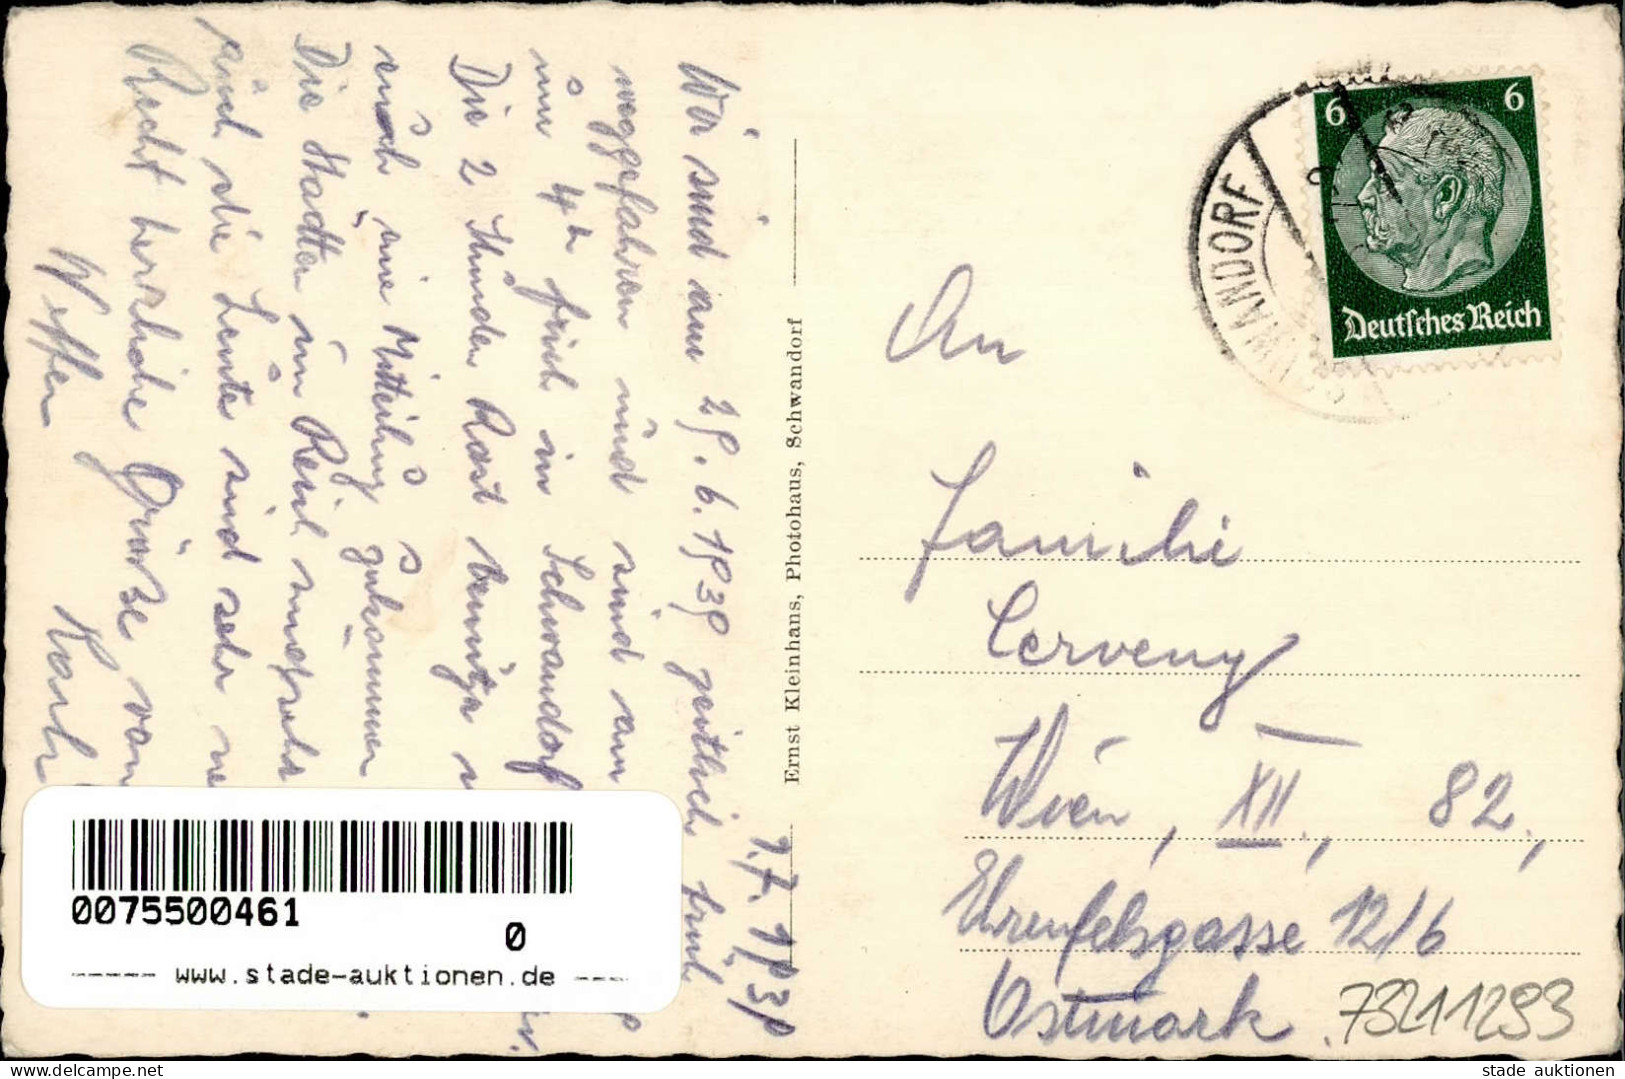 1.7.1939
Wir sind am 29.6.1939 zeitlich früh
weggefahren und sind am
um 4h früh in Schwandorf
Die 2 Stunden Rast
eine Mitteilung zukommen
Die Städte im Reich
und die Leute sind sehr
Recht herzliche Grüße von
Neffen Karl
Ernst Kleinhans, Photohaus, Schwandorf
SCHWANDORF
6 6
Deutsches Reich
An
Familie
Cerveny
Wien, XII., 82.,
Ehrenfelsgasse 12/6
Ostmark
73211293
0075500461
0
www.stade-auktionen.de
delcampe.net
stade auktionen